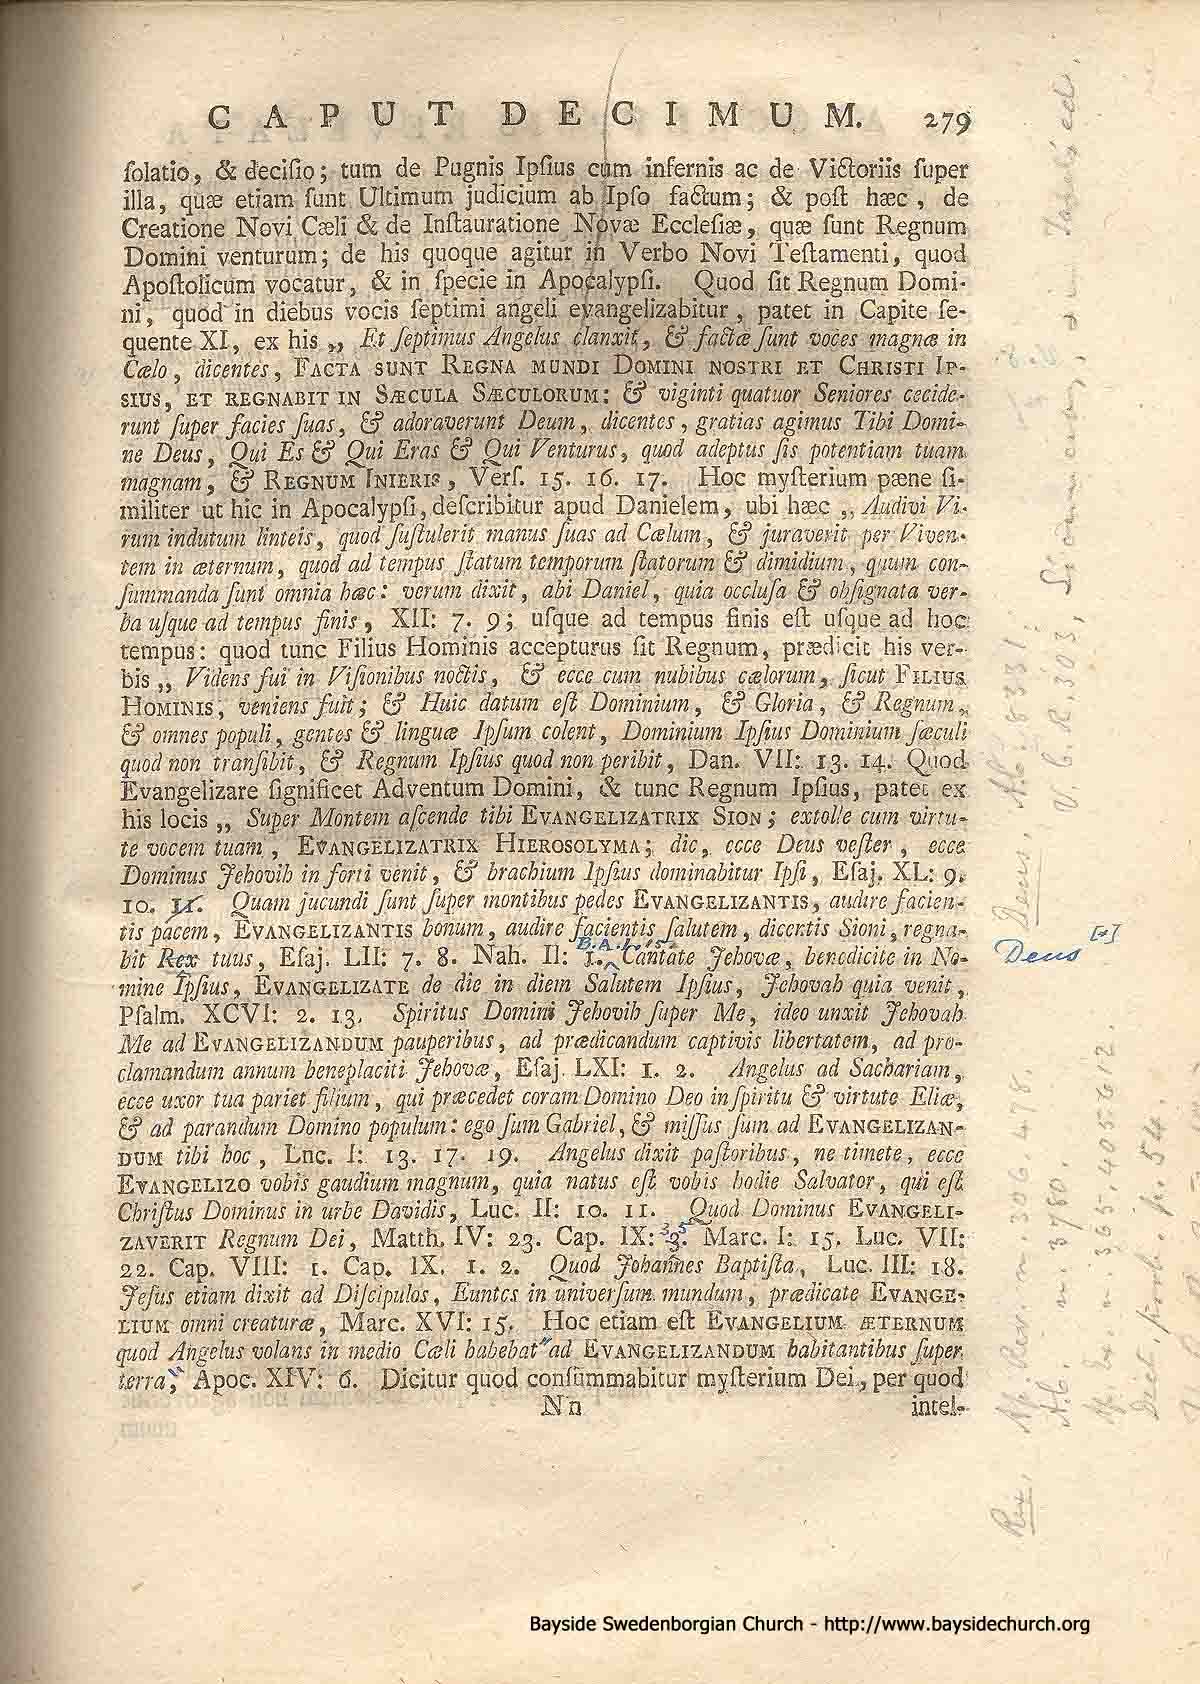 CAPUT DECIMUM. 279
ſolatio, & deciſio; tum de Pugnis Ipſius cum infernis ac de Victoriis ſuper
illa, quæ etiam ſunt Ultimum judicium ab Ipſo factum; & poſt hæc, de
Creatione Novi Cæli & de Inſtauratione Novæ Eccleſiæ, quæ ſunt Regnum
Domini venturum; de his quoque agitur in Verbo Novi Teſtamenti, quod
Apoſtolicum vocatur, & in ſpecie in Apocalypſi. Quod ſit Regnum Domi-
ni, quod in diebus vocis ſeptimi angeli evangelizabitur, patet in Capite ſe-
quente XI, ex his „ Et ſeptimus Angelus clanxit, & factæ ſunt voces magnæ in
Cælo, dicentes, FACTA SUNT REGNA MUNDI DOMINI NOSTRI ET CHRISTI IP-
SIUS, ET REGNABIT IN SÆCULA SÆCULORUM: & viginti quatuor Seniores cecide-
runt ſuper facies ſuas, & adoraverunt Deum, dicentes, gratias agimus Tibi Domi-
ne Deus, Qui Es & Qui Eras & Qui Venturus, quod adeptus ſis potentiam tuam
magnam, & REGNUM INIERIS, Verſ. 15. 16. 17. Hoc myſterium pæne ſi-
militer ut hic in Apocalypſi, deſcribitur apud Danielem, ubi hæc „ Audivi Vi-
rum indutum linteis, quod ſuſtulerit manus ſuas ad Cælum, & juraverit per Viven-
tem in æternum, quod ad tempus ſtatum temporum ſtatorum & dimidium, quum con-
ſummanda ſunt omnia hæc: verum dixit, abi Daniel, quia occluſa & obſignata ver-
ba uſque ad tempus finis, XII: 7. 9; uſque ad tempus finis eſt uſque ad hoc
tempus: quod tunc Filius Hominis accepturus ſit Regnum, prædicit his ver-
bis „ Videns fui in Viſionibus noctis, & ecce cum nubibus cælorum, ſicut FILIUS
HOMINIS, veniens fuit; & Huic datum eſt Dominium, & Gloria, & Regnum,
& omnes populi, gentes & linguæ Ipſum colent, Dominium Ipſius Dominium ſæculi
quod non tranſibit, & Regnum Ipſius quod non peribit, Dan. VII: 13. 14. Quod
Evangelizare ſignificet Adventum Domini, & tunc Regnum Ipſius, patet ex
his locis „ Super Montem aſcende tibi EVANGELIZATRIX SION; extolle cum virtu-
te vocem tuam, EVANGELIZATRIX HIEROSOLYMA; dic, ecce Deus veſter, ecce
Dominus Jehovih in forti venit, & brachium Ipſius dominabitur Ipſi, Eſaj. XL: 9.
10. 11. Quam jucundi ſunt ſuper montibus pedes EVANGELIZANTIS, audire facien-
tis pacem, EVANGELIZANTIS bonum, audire facientis ſalutem, dicentis Sioni, regna-
B.A. 15
bit Rex tuus, Eſaj. LII: 7. 8. Nah. II: 1. Cantate Jehovæ, benedicite in No- Deus
mine Ipſius, EVANGELIZATE de die in diem Salutem Ipſius, Jehovah quia venit,
Pſalm. XCVI: 2. 13. Spiritus Domini Jehovih ſuper Me, ideo unxit Jehovah
Me ad EVANGELIZANDUM pauperibus, ad prædicandum captivis libertatem, ad pro-
clamandum annum beneplaciti Jehovæ, Eſaj. LXI: 1. 2. Angelus ad Sachariam,
ecce uxor tua pariet filium, qui præcedet coram Domino Deo in ſpiritu & virtute Eliæ,
& ad parandum Domino populum: ego ſum Gabriel, & miſſus ſum ad EVANGELIZAN-
DUM tibi hoc, Luc. I: 13. 17. 19. Angelus dixit paſtoribus, ne timete, ecce
EVANGELIZO vobis gaudium magnum, quia natus eſt vobis hodie Salvator, qui eſt
Chriſtus Dominus in urbe Davidis, Luc. II: 10. 11. Quod Dominus EVANGELI-
ZAVERIT Regnum Dei, Matth. IV: 23. Cap. IX: 35. Marc. I: 15. Luc. VII:
22. Cap. VIII: 1. Cap. IX. 1. 2. Quod Johannes Baptiſta, Luc. III: 18.
Jeſus etiam dixit ad Diſcipulos, Euntes in univerſum mundum, prædicate EVANGE-
LIUM omni creaturæ, Marc. XVI: 15. Hoc etiam eſt EVANGELIUM ÆTERNUM
quod Angelus volans in medio Cæli habebat ad EVANGELIZANDUM habitantibus ſuper
terra, Apoc. XIV: 6. Dicitur quod conſummabitur myſterium Dei, per quod
Nn intel-
Rex. Ap. Rev. n 306 478
n. 3780.
Deus.
V. C. R. 303,
Bayside Swedenborgian Church - http://www.baysidechurch.org